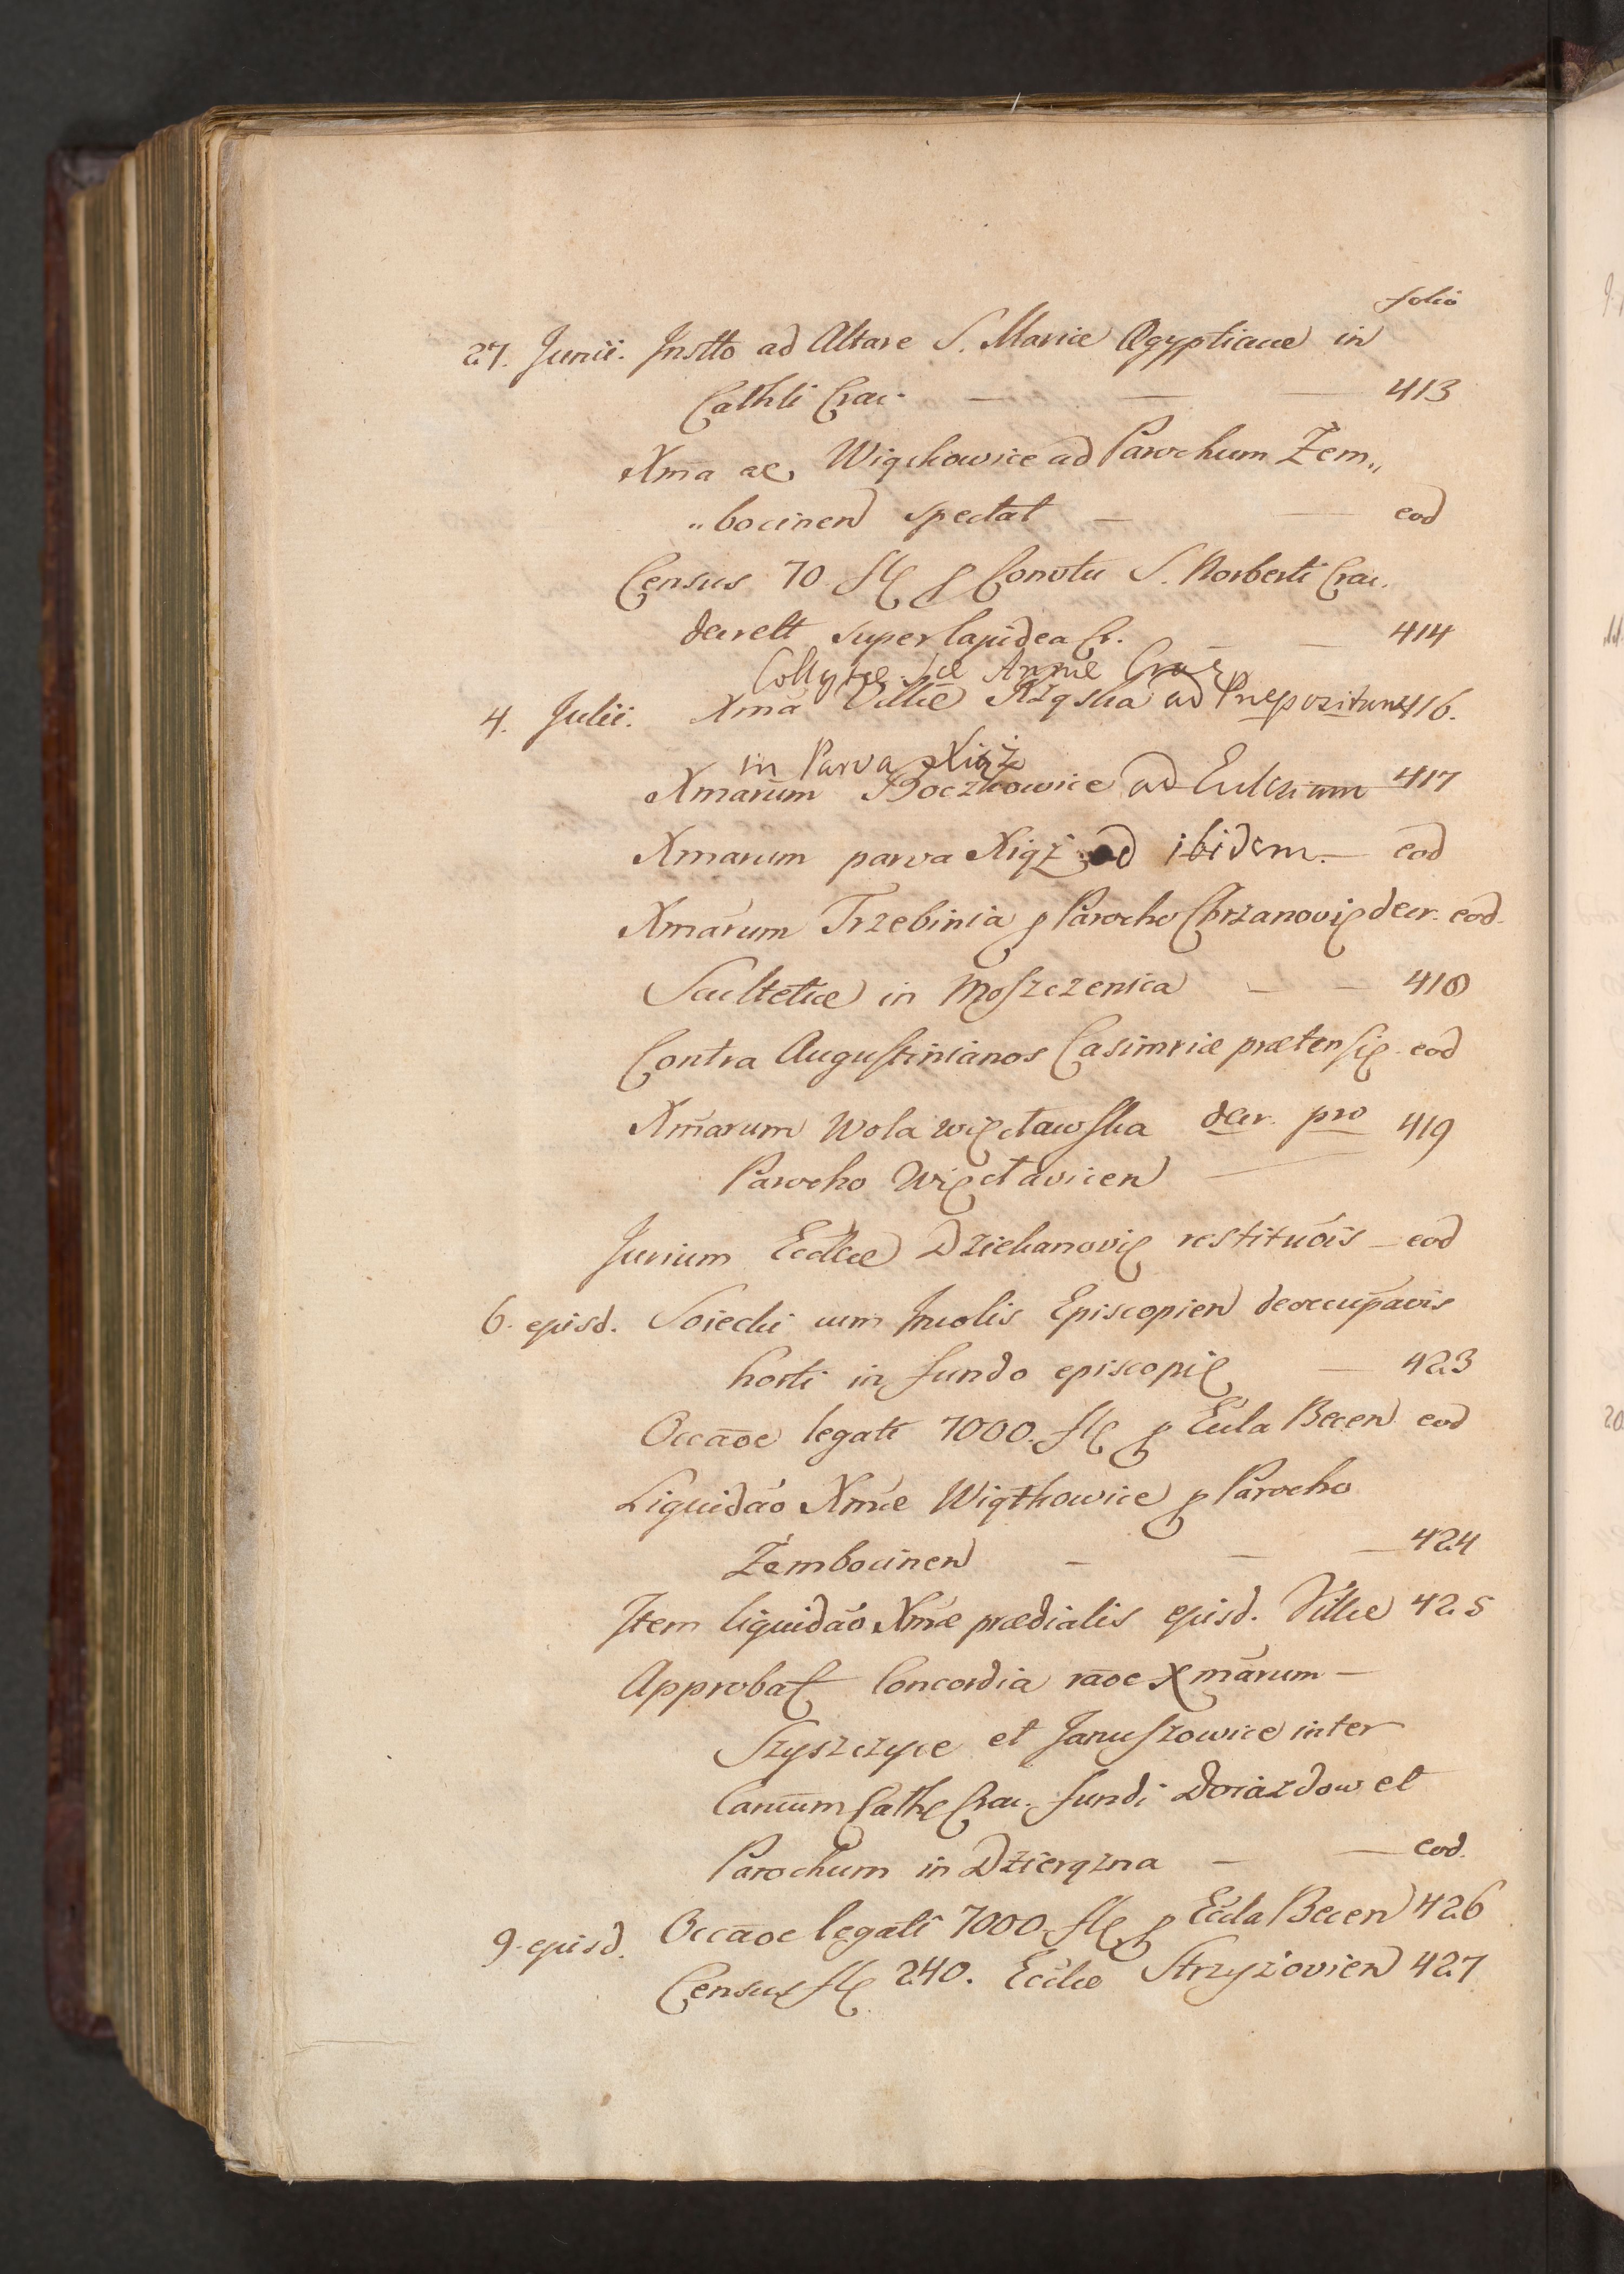 folio
27. Junii. Instto ad Altare S. Mariæ Ægyptiacæ in
Cathli Crac. — — — 413
Xma ac Wiąckowice ad Parochum Żem„
„bocinen spectat — — eod
Census 70 fl p Convtu S. Norberti Crac.
decrett super lapidea Cr. — — 414
Collgtæ Annæ Crac
4. Julii. Xma Villæ Rząska ad Præpozitum 416.
in Parva Xiąż
Xmarum Boczkowice ad Ecclesiam 417
Xmarum parva Xiąż ad ibidem. — eod
Xmarum Trzebinia p Parocho Chrzanovie decr. eod.
Scultetiæ in Moszczenica — — 418
Contra Augustinianos Casimriæ prætensie eod
Xmarum Wola więcławska decr. pro 419
Parocho Więcłavicen —
Jurium Ecclæ Dziekanovie restituois — eod
6. ejusd. Soiecki cum Incolis Episcopien deoccupaois
horti in fundo episcopie — 423
Occaoe legati 7000. fl p Eccla Becen eod
Liquidao Xmæ Wiątkowice p Parocho
Żembocinen — — — 424
Item liquidao Xmæ prædialis ejusd. Villæ 425
Approbat Concordia raoe Xmarum —
Szyszczyce et Januszowice inter
Canicum Cath Crac. fundi Doiazdow et
Parochum in Dzierązna — — eod.
9. ejusd. Occaoe legati 7000. fl p Eccla Becen 426
Census fl 240. Ecclæ Strzyżovien 427